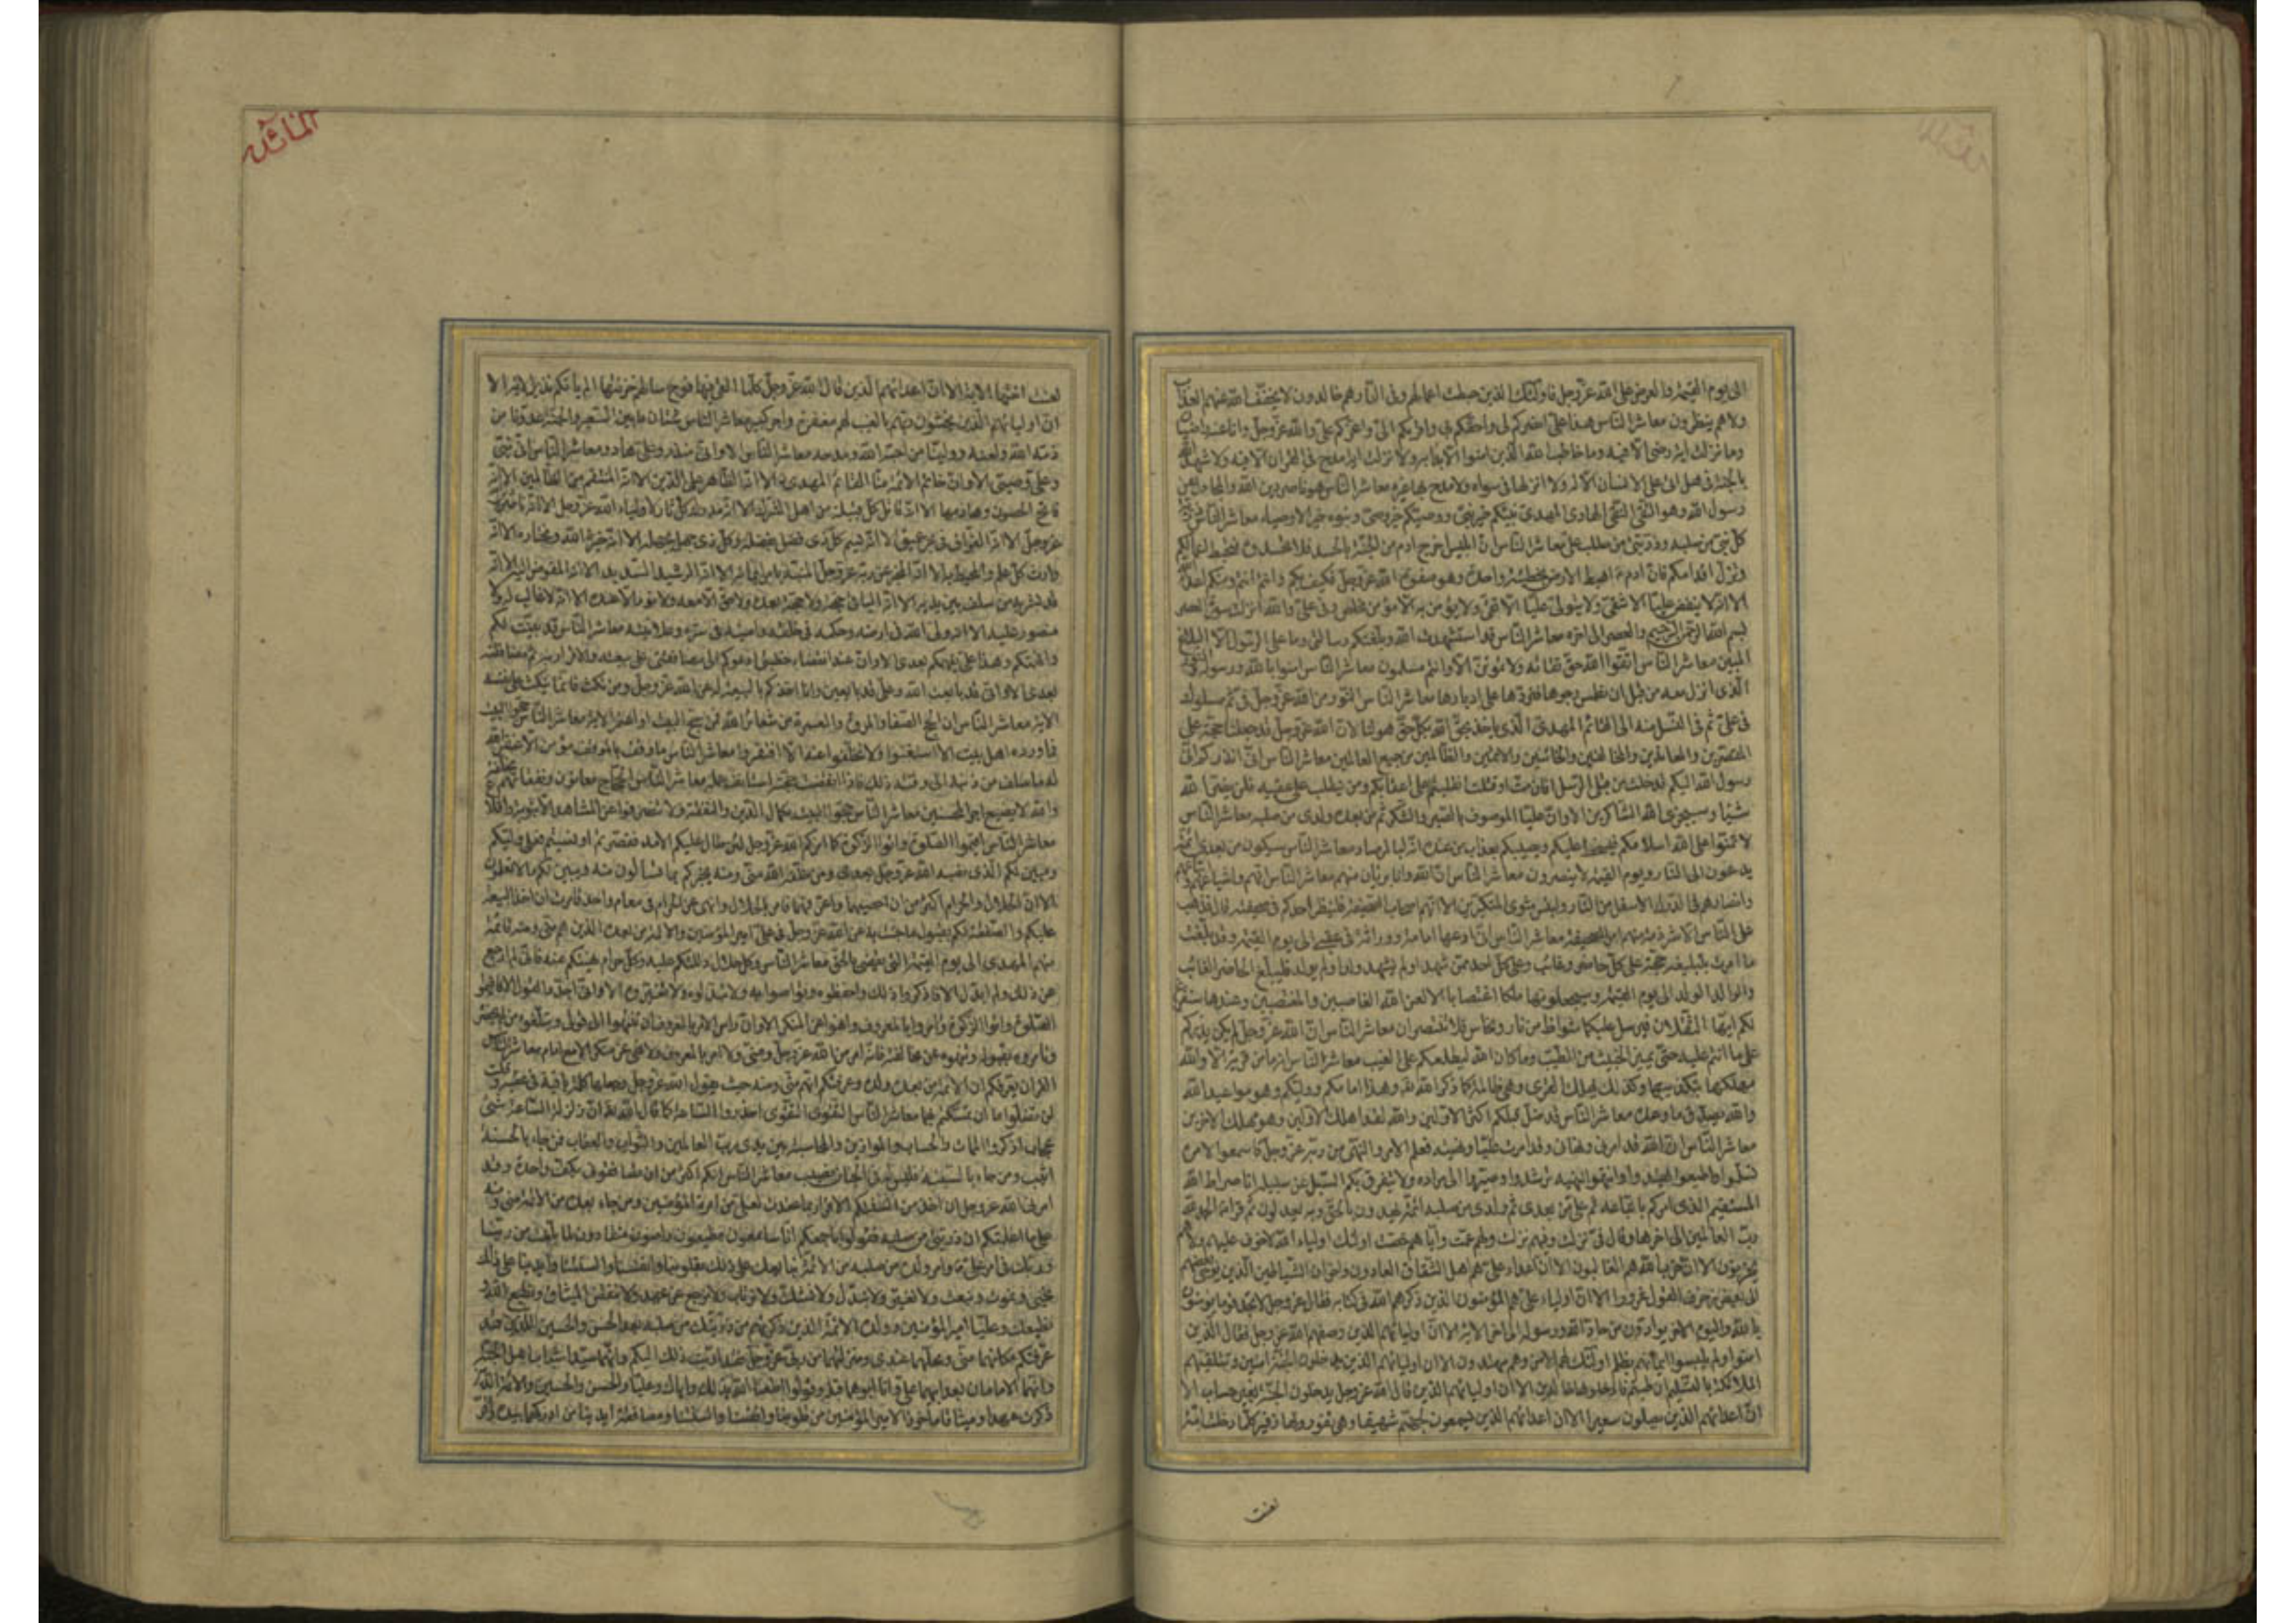 المائدة
الى يوم القيمة والعرض على الله عز وجل فاولئك الذين حبطت اعمالهم وفى النار هم خالدون لا يخفف الله عنهم العذاب
ولا هم ينظرون معاشر الناس هذا على انصركم لى واحقكم بى واقربكم الى واعزكم على والله عز وجل وانا عنه راضيان
وما نزلت اية رضى الا فيه وما خاطب الله الذين امنوا الا بدأ به ولا نزلت اية مدح فى القران الا فيه ولا شهد الله
بالجنة فى هل اتى على الانسان الا له ولا انزلها فى سواه ولا مدح بها غيره معاشر الناس هو ناصر دين الله والمجادل عن
رسول الله وهو التقى النقى الهادى المهدى نبيكم خير نبى ووصيكم خير وصى وبنوه خير الاوصياء معاشر الناس ذرية
كل نبى من صلبه وذريتى من صلب على معاشر الناس ان ابليس اخرج ادم من الجنة بالحسد فلا تحسدوه فتحبط اعمالكم
وتزل اقدامكم فان ادم اهبط الى الارض بخطيئة واحدة وهو صفوة الله عز وجل فكيف بكم وانتم انتم ومنكم اعداء الله
الا انه لا يبغض عليا الا شقى ولا يتولى عليا الا تقى ولا يؤمن به الا مؤمن مخلص وفى على والله انزلت سورة العصر
بسم الله الرحمن الرحيم والعصر الى اخره معاشر الناس قد استشهدت الله وبلغتكم رسالتى وما على الرسول الا البلاغ
المبين معاشر الناس اتقوا الله حق تقاته ولا تموتن الا وانتم مسلمون معاشر الناس امنوا بالله ورسوله والنور
الذى انزل معه من قبل ان نطمس وجوها فنردها على ادبارها معاشر الناس النور من الله عز وجل فى ثم مسلوك
فى على ثم فى النسل منه الى القائم المهدى الذى ياخذ بحق الله وبكل حق هو لنا لان الله عز وجل قد جعلنا حجة على
المقصرين والمعاندين والمخالفين والخائنين والاثمين والظالمين من جميع العالمين معاشر الناس انى انذركم انى
رسول الله اليكم قد خلت من قبلى الرسل افان مت او قتلت انقلبتم على اعقابكم ومن ينقلب على عقبيه فلن يضر الله
شيئا وسيجزى الله الشاكرين الا وان عليا الموصوف بالصبر والشكر ثم من بعده ولدى من صلبه معاشر الناس
لا تمنوا على الله اسلامكم فيسخط عليكم ويصيبكم بعذاب من عنده انه لبالمرصاد معاشر الناس سيكون من بعدى ائمة
يدعون الى النار ويوم القيمة لا ينصرون معاشر الناس ان الله وانا بريئان منهم معاشر الناس انهم واشياعهم واتباعهم
وانصارهم فى الدرك الاسفل من النار ولبئس مثوى المتكبرين الا انهم اصحاب الصحيفة فلينظر احدكم فى صحيفته قال فذهب
على الناس الا شرذمة منهم امر الصحيفة معاشر الناس انى ادعها امامة ووراثة فى عقبى الى يوم القيمة وقد بلغت
ما امرت بتبليغه حجة على كل حاضر وغائب وعلى كل احد ممن شهد او لم يشهد ولد او لم يولد فليبلغ الحاضر الغائب
والوالد الولد الى يوم القيمة وسيجعلونها ملكا اغتصابا الا لعن الله الغاصبين والمغتصبين وعندها سنفرغ
لكم ايها الثقلان فيرسل عليكما شواظ من نار ونحاس فلا تنتصران معاشر الناس ان الله عز وجل لم يكن يذركم
على ما انتم عليه حتى يميز الخبيث من الطيب وما كان الله ليطلعكم على الغيب معاشر الناس انه ما من قرية الا والله
مهلكها بتكذيبها وكذلك يهلك القرى وهى ظالمة كما ذكر الله وهذا امامكم ووليكم وهو مواعيد الله
والله يصدق ما وعده معاشر الناس قد ضل قبلكم اكثر الاولين والله لقد اهلك الاولين وهو مهلك الاخرين
معاشر الناس ان الله قد امرنى ونهانى وقد امرت عليا ونهيته فعلم الامر والنهى من ربه عز وجل فاسمعوا لامره
تسلموا واطيعوا تهتدوا وانتهوا لنهيه ترشدوا وصيروا الى مراده ولا يتفرق بكم السبل عن سبيله انا صراط الله
المستقيم الذى امركم باتباعه ثم على من بعدى ثم ولدى من صلبه ائمة يهدون بالحق وبه يعدلون ثم قرأ الحمد لله
رب العالمين الى اخرها وقال فى نزلت وفيهم نزلت ولهم عمت واياهم خصت اولئك اولياء الله لا خوف عليهم ولا هم
يحزنون الا ان حزب الله هم الغالبون الا ان اعداء على هم اهل الشقاق العادون واخوان الشياطين الذين يوحى بعضهم
الى بعض زخرف القول غرورا الا ان اولياء على هم المؤمنون الذين ذكرهم الله فى كتابه فقال عز وجل لا تجد قوما يؤمنون
بالله واليوم الاخر يوادون من حاد الله ورسوله الى اخر الاية الا ان اولياءهم الذين وصفهم الله عز وجل فقال الذين
امنوا ولم يلبسوا ايمانهم بظلم اولئك لهم الامن وهم مهتدون الا ان اولياءهم الذين يدخلون الجنة امنين وتتلقيهم
الملائكة بالتسليم ان طبتم فادخلوها خالدين الا ان اولياءهم الذين قال الله عز وجل يدخلون الجنة بغير حساب الا
ان اعداءهم الذين يصلون سعيرا الا ان اعداءهم الذين يسمعون لجهنم شهيقا وهى تفور ولها زفير كلما دخلت امة
لعنت
لعنت اختها الاية الا ان اعداءهم الذين قال الله عز وجل كلما القى فيها فوج سالهم خزنتها الم ياتكم نذير الاية الا
ان اولياءهم الذين يخشون ربهم بالغيب لهم مغفرة واجر كبير معاشر الناس شتان ما بين السعير والجنة عدونا من
ذمه الله ولعنه وولينا من احبه الله ومدحه معاشر الناس الا وانى منذر وعلى هاد معاشر الناس انى نبى
وعلى وصيى الا وان خاتم الائمة منا القائم المهدى الا انه الظاهر على الدين الا انه المنتقم من الظالمين الا انه
فاتح الحصون وهادمها الا انه قاتل كل قبيلة من اهل الشرك الا انه مدرك كل ثار لاولياء الله عز وجل الا انه ناصر دين الله
عز وجل الا انه الغراف فى بحر عميق الا انه يسم كل ذى فضل بفضله وكل ذى جهل بجهله الا انه خيرة الله ومختاره الا انه
وارث كل علم والمحيط به الا انه المخبر عن ربه عز وجل المنبه بامر ايمانه الا انه الرشيد السديد الا انه المفوض اليه الا انه
قد بشر به من سلف بين يديه الا انه الباقى حجة ولا حجة بعده ولا حق الا معه ولا نور الا عنده الا انه لا غالب له ولا
منصور عليه الا انه ولى الله فى ارضه وحكمه فى خلقه وامينه فى سره وعلانيته معاشر الناس قد بينت لكم
وافهمتكم وهذا على يفهمكم بعدى الا وان عند انقضاء خطبتى ادعوكم الى مصافقتى على بيعته والاقرار به ثم مصافقته
بعدى الا وانى قد بايعت الله وعلى قد بايعنى وانا اخذكم بالبيعة له عن الله عز وجل ومن نكث فانما ينكث على نفسه
الاية معاشر الناس ان الحج والصفا والمروة والعمرة من شعائر الله فمن حج البيت او اعتمر الاية معاشر الناس حجوا البيت
فما ورده اهل بيت الا استغنوا ولا تخلفوا عنه الا افتقروا معاشر الناس ما وقف بالموقف مؤمن الا غفر الله
له ما سلف من ذنبه الى وقته ذلك فاذا انقضت حجته استانف عمله معاشر الناس الحجاج معانون ونفقاتهم مخلفة
والله لا يضيع اجر المحسنين معاشر الناس حجوا البيت بكمال الدين والتفقه ولا تنصرفوا عن المشاهد الا بتوبة واقلاع
معاشر الناس اقيموا الصلوة واتوا الزكوة كما امركم الله عز وجل لئن طال عليكم الامد فقصرتم او نسيتم فعلى وليكم
ومبين لكم الذى نصبه الله عز وجل بعدى ومن خلقه الله منى ومنه يخبركم بما تسالون عنه ويبين لكم ما لا تعلمون
الا ان الحلال والحرام اكثر من ان احصيهما واعرفهما فامر بالحلال وانهى عن الحرام فى مقام واحد فامرت ان اخذ البيعة
عليكم والصفقة لكم بقبول ما جئت به عن الله عز وجل فى على امير المؤمنين والائمة من بعده الذين هم منى ومنه قائمة
منهم المهدى الى يوم القيمة الذى يقضى بالحق معاشر الناس وكل حلال دللتكم عليه وكل حرام نهيتكم عنه فانى لم ارجع
عن ذلك ولم ابدل الا فاذكروا ذلك واحفظوه وتواصوا به ولا تبدلوه ولا تغيروه الا وانى اجدد القول الا فاقيموا
الصلوة واتوا الزكوة وأمروا بالمعروف وانهوا عن المنكر الا وان راس الامر بالمعروف ان تنتهوا الى قولى وتبلغوه من لم يحضر
وتأمروه بقبوله وتنهوه عن مخالفته فانه امر من الله عز وجل ومنى ولا امر بالمعروف ولا نهى عن منكر الا مع امام معاشر الناس
القران يعرفكم ان الائمة من بعده ولده وعرفتكم انهم منى ومنه حيث يقول الله عز وجل وجعلها كلمة باقية فى عقبه وقلت
لن تضلوا ما ان تمسكتم بهما معاشر الناس التقوى التقوى احذروا الساعة كما قال الله ان زلزلة الساعة شئ
عظيم اذكروا الممات والحساب والموازين والمحاسبة بين يدى رب العالمين والثواب والعقاب فمن جاء بالحسنة
اثيب ومن جاء بالسيئة فليس له فى الجنان نصيب معاشر الناس انكم اكثر من ان تصافقونى بكف واحدة وقد
امرنى الله عز وجل ان اخذ من السنتكم الاقرار بما عقدت لعلى من امرة المؤمنين ومن جاء بعده من الائمة منى ومنه
على ما اعلمتكم ان ذريتى من صلبه فقولوا باجمعكم انا سامعون مطيعون راضون منقادون لما بلغت من ربنا
وربك فى امر على وامر ولده من صلبه من الائمة نبايعك على ذلك بقلوبنا وانفسنا والسنتنا وايدينا على ذلك
نحيى ونموت ونبعث ولا نغير ولا نبدل ولا نشك ولا نرتاب ولا نرجع عن عهد ولا ننقض الميثاق ونطيع الله
ونطيعك وعليا امير المؤمنين وولده الائمة الذين ذكرتهم من ذريتك من صلبه بعد الحسن والحسين الذين قد
عرفتكم مكانهما منى ومحلهما عندى ومنزلتهما من ربى عز وجل فقد اديت ذلك اليكم وانهما سيدا شباب اهل الجنة
وانهما الامامان بعد ابيهما على وانا ابوهما قبله وقولوا اطعنا الله بذلك واياك وعليا والحسن والحسين والائمة الذين
ذكرت عهدا وميثاقا ماخوذا لامير المؤمنين من قلوبنا وانفسنا والسنتنا ومصافقة ايدينا من ادركهما بيده واقر